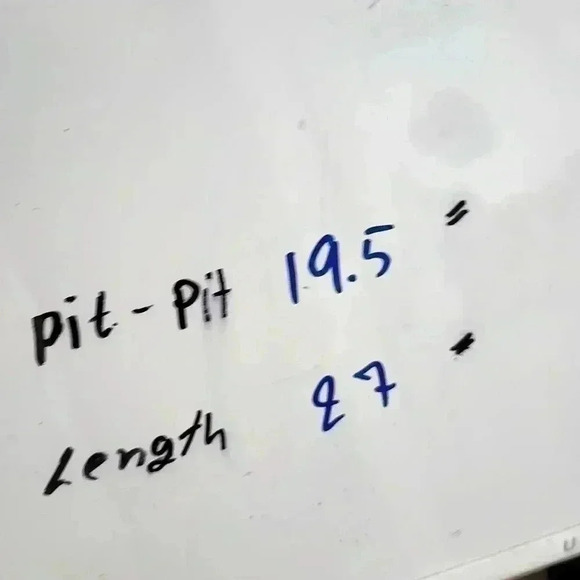 Pit - Pit 19.5 "
Length 27 "